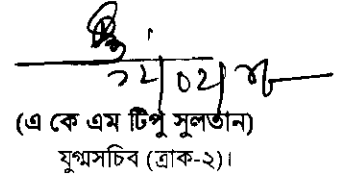 (এ কে এম টিপু সুলতান)
যুগ্মসচিব (ত্রাক-২)।